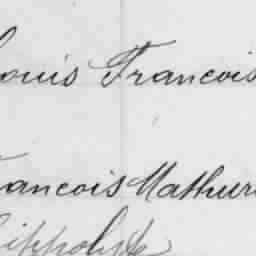 Louis Francois
Francois Mathurin
Hippolyte